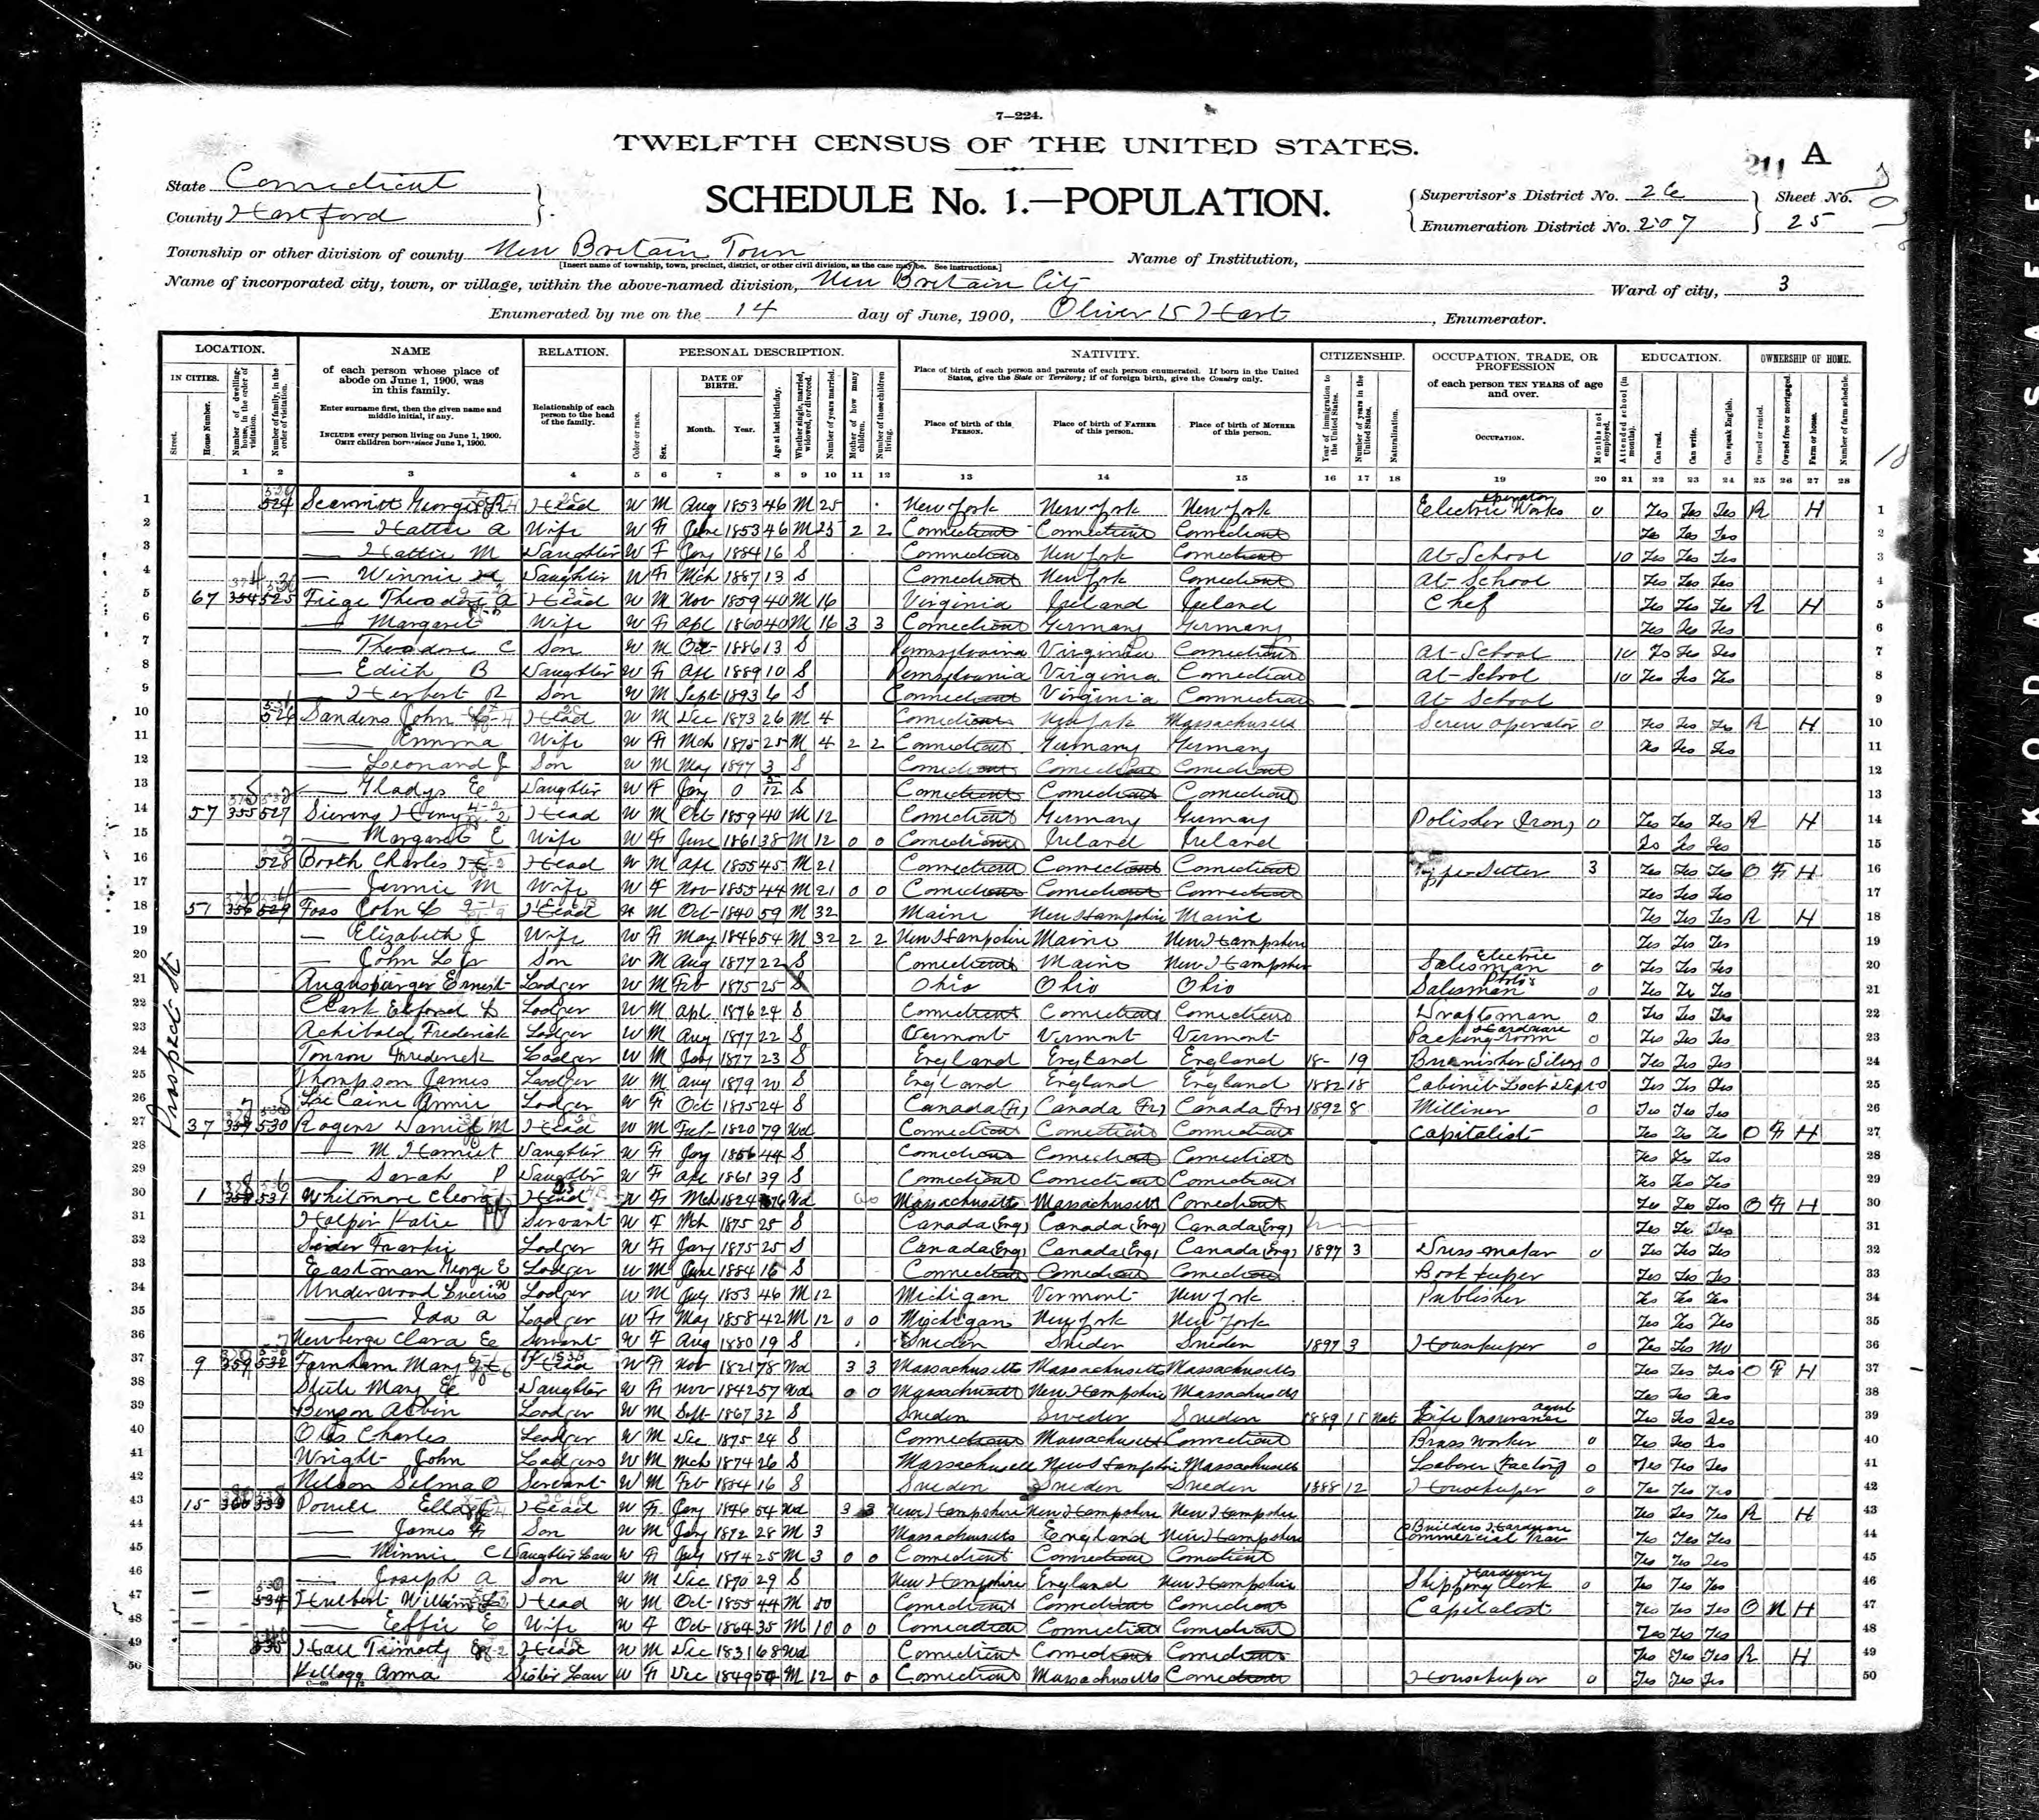 7—224.
TWELFTH CENSUS OF THE UNITED STATES.
211 A
State Connecticut
County Hartford
SCHEDULE No. 1.—POPULATION.
Supervisor's District No. 26
Enumeration District No. 207
Sheet No.
25
Township or other division of county New Britain Town
[Insert name of township, town, precinct, district, or other civil division, as the case may be. See instructions.]
Name of Institution,
Name of incorporated city, town, or village, within the above-named division, New Britain City
Ward of city, 3
Enumerated by me on the 14 day of June, 1900, Oliver Hart, Enumerator.
LOCATION. NAME RELATION. PERSONAL DESCRIPTION. NATIVITY. CITIZENSHIP. OCCUPATION, TRADE, OR PROFESSION EDUCATION. OWNERSHIP OF HOME.
IN CITIES. Street. House Number. Number of dwelling-house, in the order of visitation. Number of family, in the order of visitation.
of each person whose place of abode on June 1, 1900, was in this family.
Enter surname first, then the given name and middle initial, if any.
INCLUDE every person living on June 1, 1900.
OMIT children born since June 1, 1900.
Relationship of each person to the head of the family.
Color or race. Sex. DATE OF BIRTH. Month. Year. Age at last birthday. Whether single, married, widowed, or divorced. Number of years married. Mother of how many children. Number of these children living.
Place of birth of each person and parents of each person enumerated. If born in the United States, give the State or Territory; if of foreign birth, give the Country only.
Place of birth of this PERSON. Place of birth of FATHER of this person. Place of birth of MOTHER of this person.
Year of immigration to the United States. Number of years in the United States. Naturalization.
of each person TEN YEARS of age and over.
OCCUPATION. Months not employed.
Attended school (in months). Can read. Can write. Can speak English.
Owned or rented. Owned free or mortgaged. Farm or house. Number of farm schedule.
1 2 3 4 5 6 7 8 9 10 11 12 13 14 15 16 17 18 19 20 21 22 23 24 25 26 27 28
Prospect St
1 524 Head W M Aug 1853 46 M 25 New York New York New York Electric Works operator 0 Yes Yes Yes R H 1
2 — Hattie A Wife W F June 1853 46 M 25 2 2 Connecticut Connecticut Connecticut Yes Yes Yes 2
3 — Hattie M Daughter W F Jany 1884 16 S Connecticut New York Connecticut At School 10 Yes Yes Yes 3
4 — Winnie Daughter W F Mch 1887 13 S Connecticut New York Connecticut At School Yes Yes Yes 4
5 67 354 525 Theodore A Head W M Nov 1859 40 M 16 Virginia Ireland Ireland Chef Yes Yes Yes R H 5
6 — Margaret Wife W F Apl 1860 40 M 16 3 3 Connecticut Germany Germany Yes Yes Yes 6
7 — Theodore C Son W M Oct 1886 13 S Pennsylvania Virginia Connecticut At School 10 Yes Yes Yes 7
8 — Edith B Daughter W F Apl 1889 10 S Pennsylvania Virginia Connecticut At School 10 Yes Yes Yes 8
9 — Herbert R Son W M Sept 1893 6 S Connecticut Virginia Connecticut At School 9
10 526 Sanders John Head W M Dec 1873 26 M 4 Connecticut New York Massachusetts Screw operator 0 Yes Yes Yes R H 10
11 — Emma Wife W F Mch 1875 25 M 4 2 2 Connecticut Germany Germany Yes Yes Yes 11
12 — Leonard J Son W M May 1897 3 S Connecticut Connecticut Connecticut 12
13 — Gladys E Daughter W F Jany 0 5/12 S Connecticut Connecticut Connecticut 13
14 57 355 527 Head W M Oct 1859 40 M 12 Connecticut Germany Germany Polisher (Iron) 0 Yes Yes Yes R H 14
15 — Margaret E Wife W F June 1861 38 M 12 0 0 Connecticut Ireland Ireland Yes Yes Yes 15
16 528 Booth Charles Head W M Apl 1855 45 M 21 Connecticut Connecticut Connecticut Type Setter 3 Yes Yes Yes O F H 16
17 — Jennie M Wife W F Nov 1855 44 M 21 0 0 Connecticut Connecticut Connecticut Yes Yes Yes 17
18 51 356 529 Foss John L Head W M Oct 1840 59 M 32 Maine New Hampshire Maine Yes Yes Yes R H 18
19 — Elizabeth J Wife W F May 1846 54 M 32 2 2 New Hampshire Maine New Hampshire Yes Yes Yes 19
20 — John L Jr Son W M Aug 1877 22 S Connecticut Maine New Hampshire Salesman Electric 0 Yes Yes Yes 20
21 Augsburger Ernest Lodger W M Feb 1875 25 S Ohio Ohio Ohio Salesman 0 Yes Yes Yes 21
22 Clark Lodger W M Apl 1876 24 S Connecticut Connecticut Connecticut Draftsman 0 Yes Yes Yes 22
23 Achibald Frederick Lodger W M Aug 1877 22 S Vermont Vermont Vermont Packing room Hardware 0 Yes Yes Yes 23
24 Frederick Lodger W M Jany 1877 23 S England England England 18- 19 Burnisher Silver 0 Yes Yes Yes 24
25 Thompson James Lodger W M Aug 1879 20 S England England England 1882 18 Cabinet Lock Dept 0 Yes Yes Yes 25
26 Annie Lodger W F Oct 1875 24 S Canada (Fr) Canada (Fr) Canada (Fr) 1892 8 Milliner 0 Yes Yes Yes 26
27 37 357 530 Rogers Daniel M Head W M Feb 1820 79 Wd Connecticut Connecticut Connecticut Capitalist Yes Yes Yes O F H 27
28 — M Harriet Daughter W F Jany 1856 44 S Connecticut Connecticut Connecticut Yes Yes Yes 28
29 — Sarah P Daughter W F Apl 1861 39 S Connecticut Connecticut Connecticut Yes Yes Yes 29
30 1 358 531 Whitmore Head W F Mch 1824 76 Wd Massachusetts Massachusetts Connecticut Yes Yes Yes O F H 30
31 Halpin Katie Servant W F Mch 1875 25 S Canada (Eng) Canada (Eng) Canada (Eng) Yes Yes Yes 31
32 Lodger W F Jany 1875 25 S Canada (Eng) Canada (Eng) Canada (Eng) 1897 3 Dress maker 0 Yes Yes Yes 32
33 Eastman George E Lodger W M June 1884 16 S Connecticut Connecticut Connecticut Book keeper Yes Yes Yes 33
34 Underwood Lodger W M July 1853 46 M 12 Michigan Vermont New York Publisher Yes Yes Yes 34
35 — Ida A Lodger W F May 1858 42 M 12 0 0 Michigan New York New York Yes Yes Yes 35
36 Newberge Clara E Servant W F Aug 1880 19 S Sweden Sweden Sweden 1897 3 Housekeeper 0 Yes Yes No 36
37 9 359 532 Farnham Mary Head W F Nov 1821 78 Wd 3 3 Massachusetts Massachusetts Massachusetts Yes Yes Yes O F H 37
38 Mary E Daughter W F Nov 1842 57 Wd 0 0 Massachusetts New Hampshire Massachusetts Yes Yes Yes 38
39 Benson Lodger W M Sept 1867 32 S Sweden Sweden Sweden 1889 11 Nat Life Insurance agent Yes Yes Yes 39
40 Otis Charles Lodger W M Dec 1875 24 S Connecticut Massachusetts Connecticut Brass Worker 0 Yes Yes Yes 40
41 Wright John Lodgers W M Mch 1874 26 S Massachusetts New Hampshire Massachusetts Laborer Factory 0 Yes Yes Yes 41
42 Nelson Selma O Servant W M Feb 1884 16 S Sweden Sweden Sweden 1888 12 Housekeeper 0 Yes Yes Yes 42
43 15 360 533 Ella Head W F Jany 1846 54 Wd 3 3 New Hampshire New Hampshire New Hampshire Yes Yes Yes R H 43
44 — James F Son W M Jany 1872 28 M 3 Massachusetts England New Hampshire Builders Hardware Commercial Trav Yes Yes Yes 44
45 — Minnie C Daughter Law W F July 1874 25 M 3 0 0 Connecticut Connecticut Connecticut Yes Yes Yes 45
46 — Joseph A Son W M Dec 1870 29 S New Hampshire England New Hampshire Shipping Clerk Hardware 0 Yes Yes Yes 46
47 — 534 Hulbert William Head W M Oct 1855 44 M 10 Connecticut Connecticut Connecticut Capitalist Yes Yes Yes O M H 47
48 — Effie E Wife W F Oct 1864 35 M 10 0 0 Connecticut Connecticut Connecticut Yes Yes Yes 48
49 535 Hall Timothy Head W M Dec 1831 68 Wd Connecticut Connecticut Connecticut Yes Yes Yes R H 49
50 Kellogg Anna Sister Law W F Dec 1849 50 M 12 0 0 Connecticut Massachusetts Connecticut Housekeeper 0 Yes Yes Yes 50
KODAK SAFETY